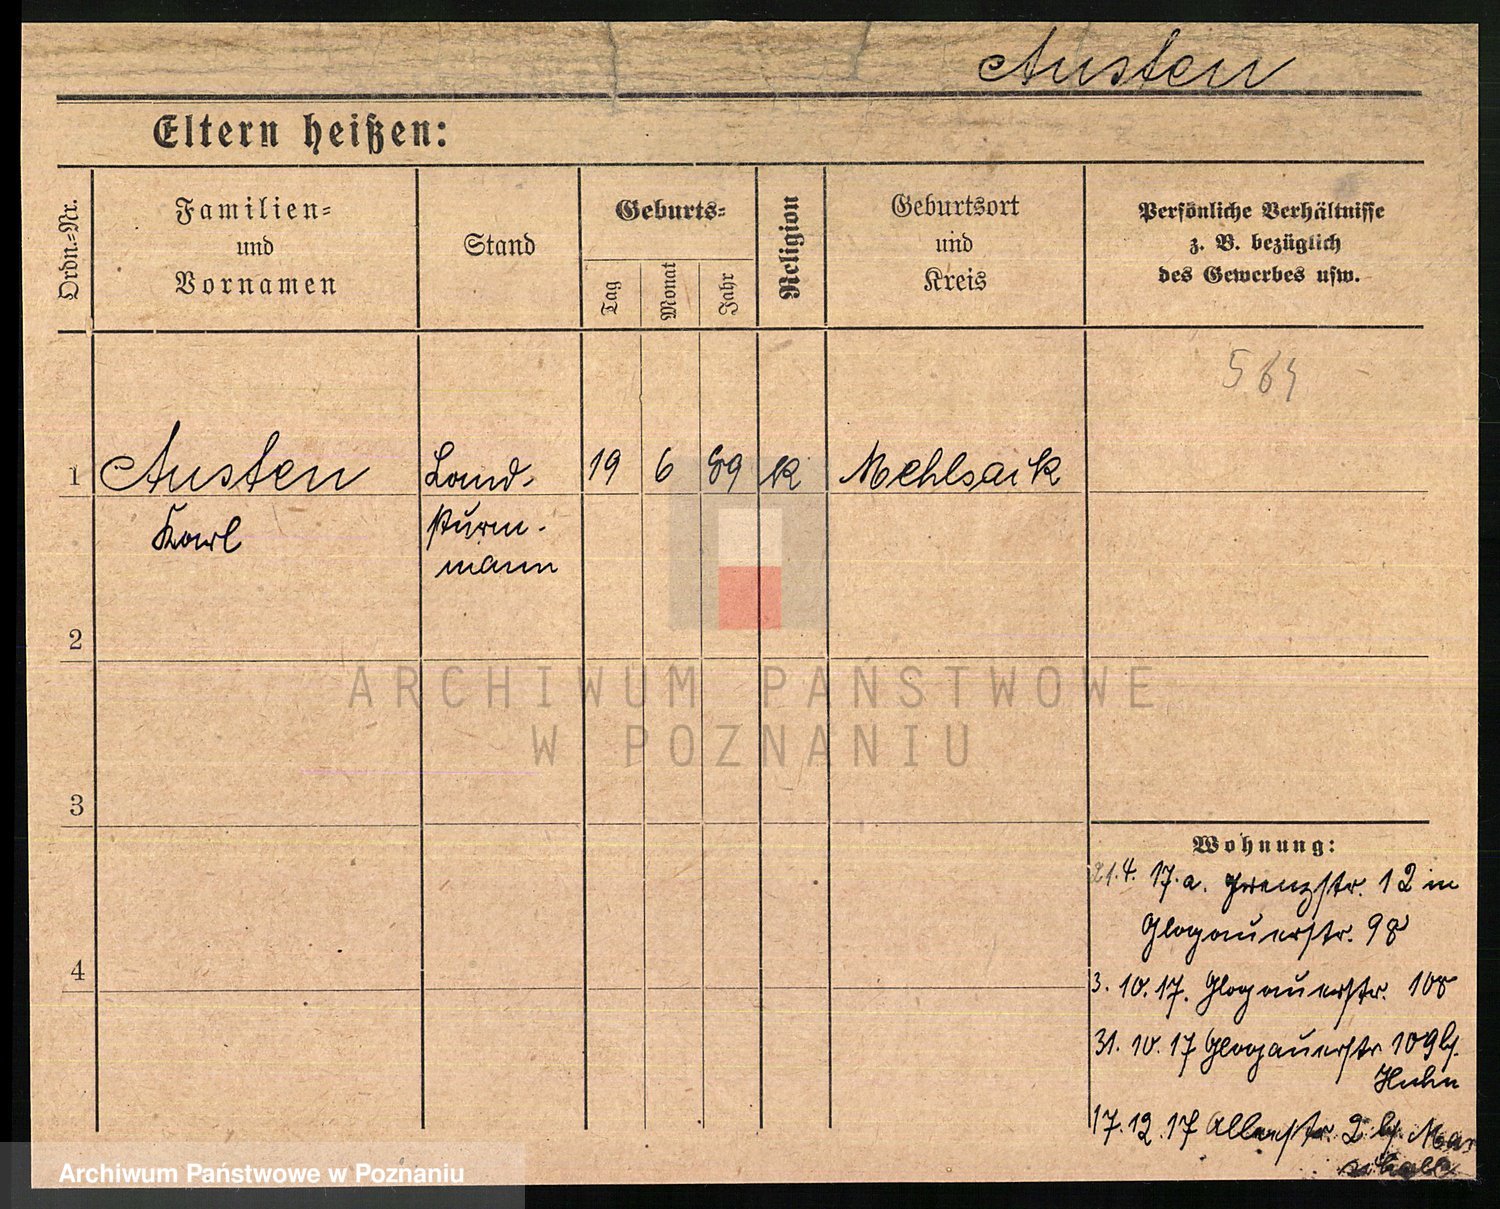 Austen
Eltern heißen:
Ordn.-Nr.
Familien-
und
Vornamen
Stand
Geburts-
Tag
Monat
Jahr
Religion
Geburtsort
und
Kreis
Persönliche Verhältnisse
z. B. bezüglich
des Gewerbes usw.
564
1 Austen Land- 19 6 89 k Mehlsack
Karl sturm-
mann
2
3
4
Wohnung:
21.4. 17. a. Grenzstr. 12 in
Glogauerstr. 98
3. 10. 17. Glogauerstr. 108
31. 10. 17 Glogauerstr 109 b/.
Huhn
17. 12. 17 2 b/.
ARCHIWUM PAŃSTWOWE
W POZNANIU
Archiwum Państwowe w Poznaniu